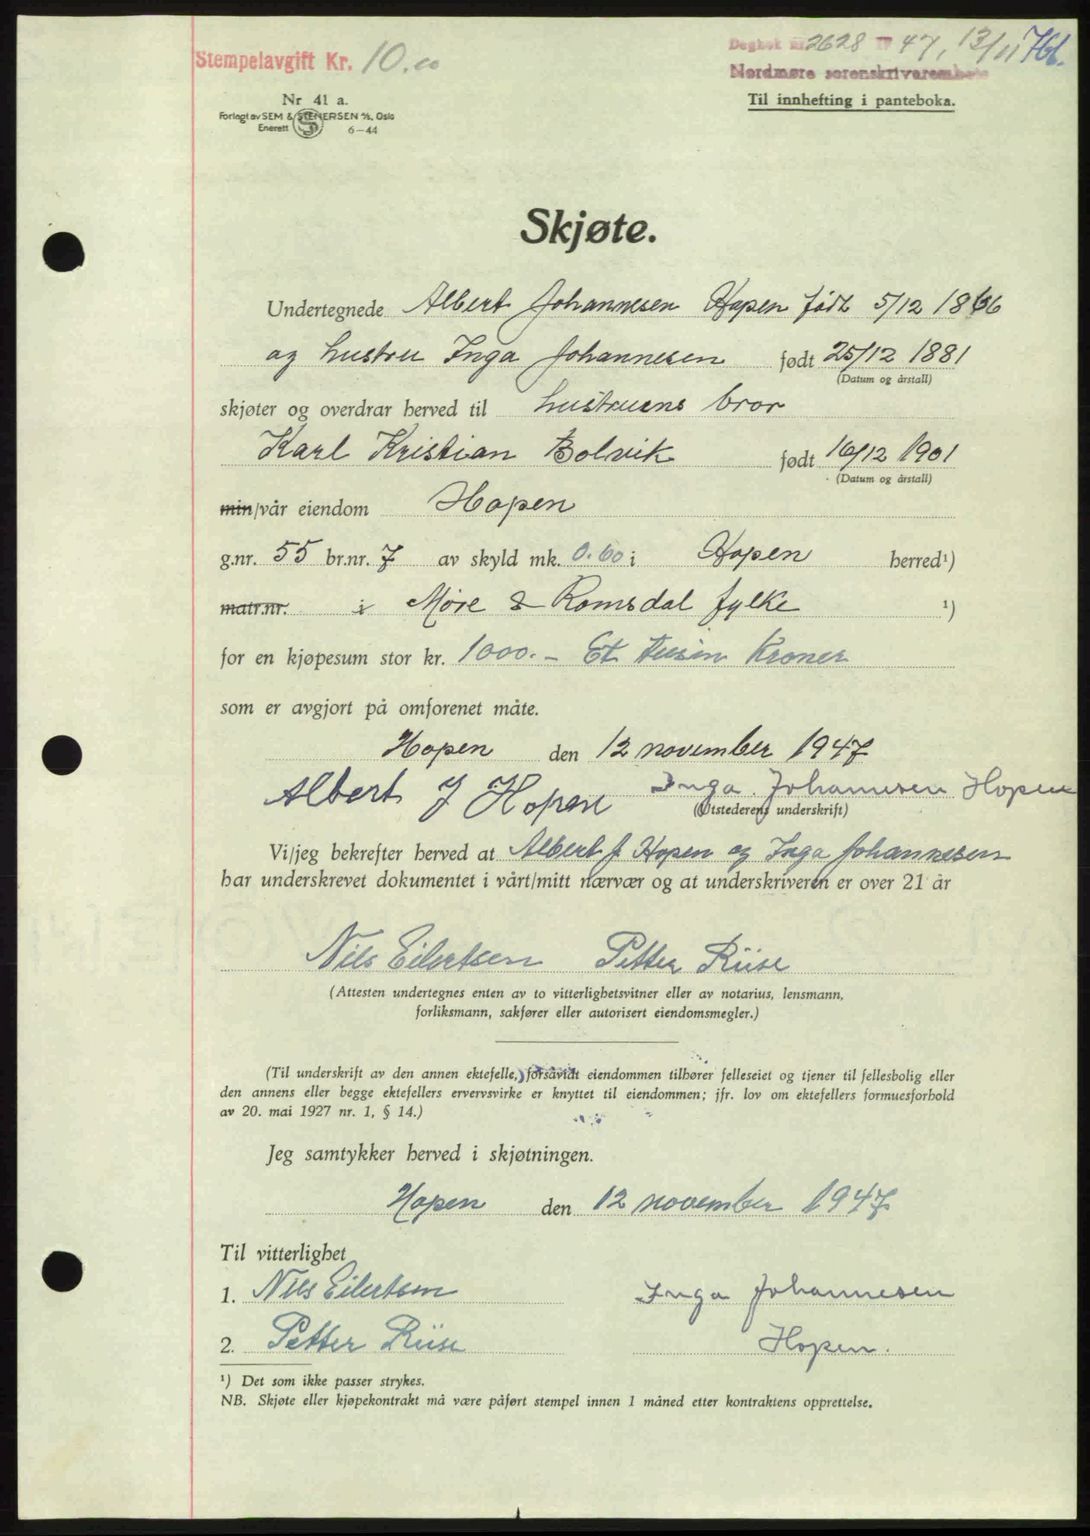 Stempelavgift Kr. 10.00
Dagbok nr 2628 19 47, 13/11
Nordmøre sorenskriverembete
Til innhefting i panteboka.
Nr 41 a.
Forlagt av SEM & STENERSEN A/S, Oslo
Enerett 6-44
Skjøte.
Undertegnede Albert Johannesen Hopen født 5/12 1866
og hustru Inga Johannesen født 25/12 1881
(Datum og årstall)
skjøter og overdrar herved til hustruens bror
Karl Kristian Bolvik født 16/12 1901
(Datum og årstall)
min/vår eiendom Hopen
g.nr. 55 br.nr. 7 av skyld mk. 0.60 i Hopen herred¹)
matr.nr. i Møre & Romsdal fylke ¹)
for en kjøpesum stor kr. 1000.- Et tusen Kroner
som er avgjort på omforenet måte.
Hopen den 12 november 1947
Albert J Hopen Inga Johannesen Hopen
(Utstederens underskrift)
Vi/jeg bekrefter herved at Albert J Hopen og Inga Johannesen
har underskrevet dokumentet i vårt/mitt nærvær og at underskriveren er over 21 år
Nils Eilertsen Petter Riise
(Attesten undertegnes enten av to vitterlighetsvitner eller av notarius, lensmann,
forliksmann, sakfører eller autorisert eiendomsmegler.)
(Til underskrift av den annen ektefelle, forsåvidt eiendommen tilhører felleseiet og tjener til fellesbolig eller
den annens eller begge ektefellers ervervsvirke er knyttet til eiendommen; jfr. lov om ektefellers formuesforhold
av 20. mai 1927 nr. 1, § 14.)
Jeg samtykker herved i skjøtningen.
Hopen den 12 november 1947
Til vitterlighet
1. Nils Eilertsen Inga Johannesen
2. Petter Riise Hopen.
¹) Det som ikke passer strykes.
NB. Skjøte eller kjøpekontrakt må være påført stempel innen 1 måned etter kontraktens opprettelse.